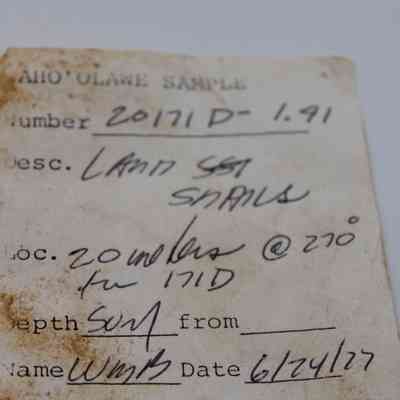 AHO'OLAWE SAMPLE
umber 20171 D- 1.91
esc. LAND
SNAILS
oc. 20 meters @ 270°
171D
epth Surf from
ame WMB Date 6/24/